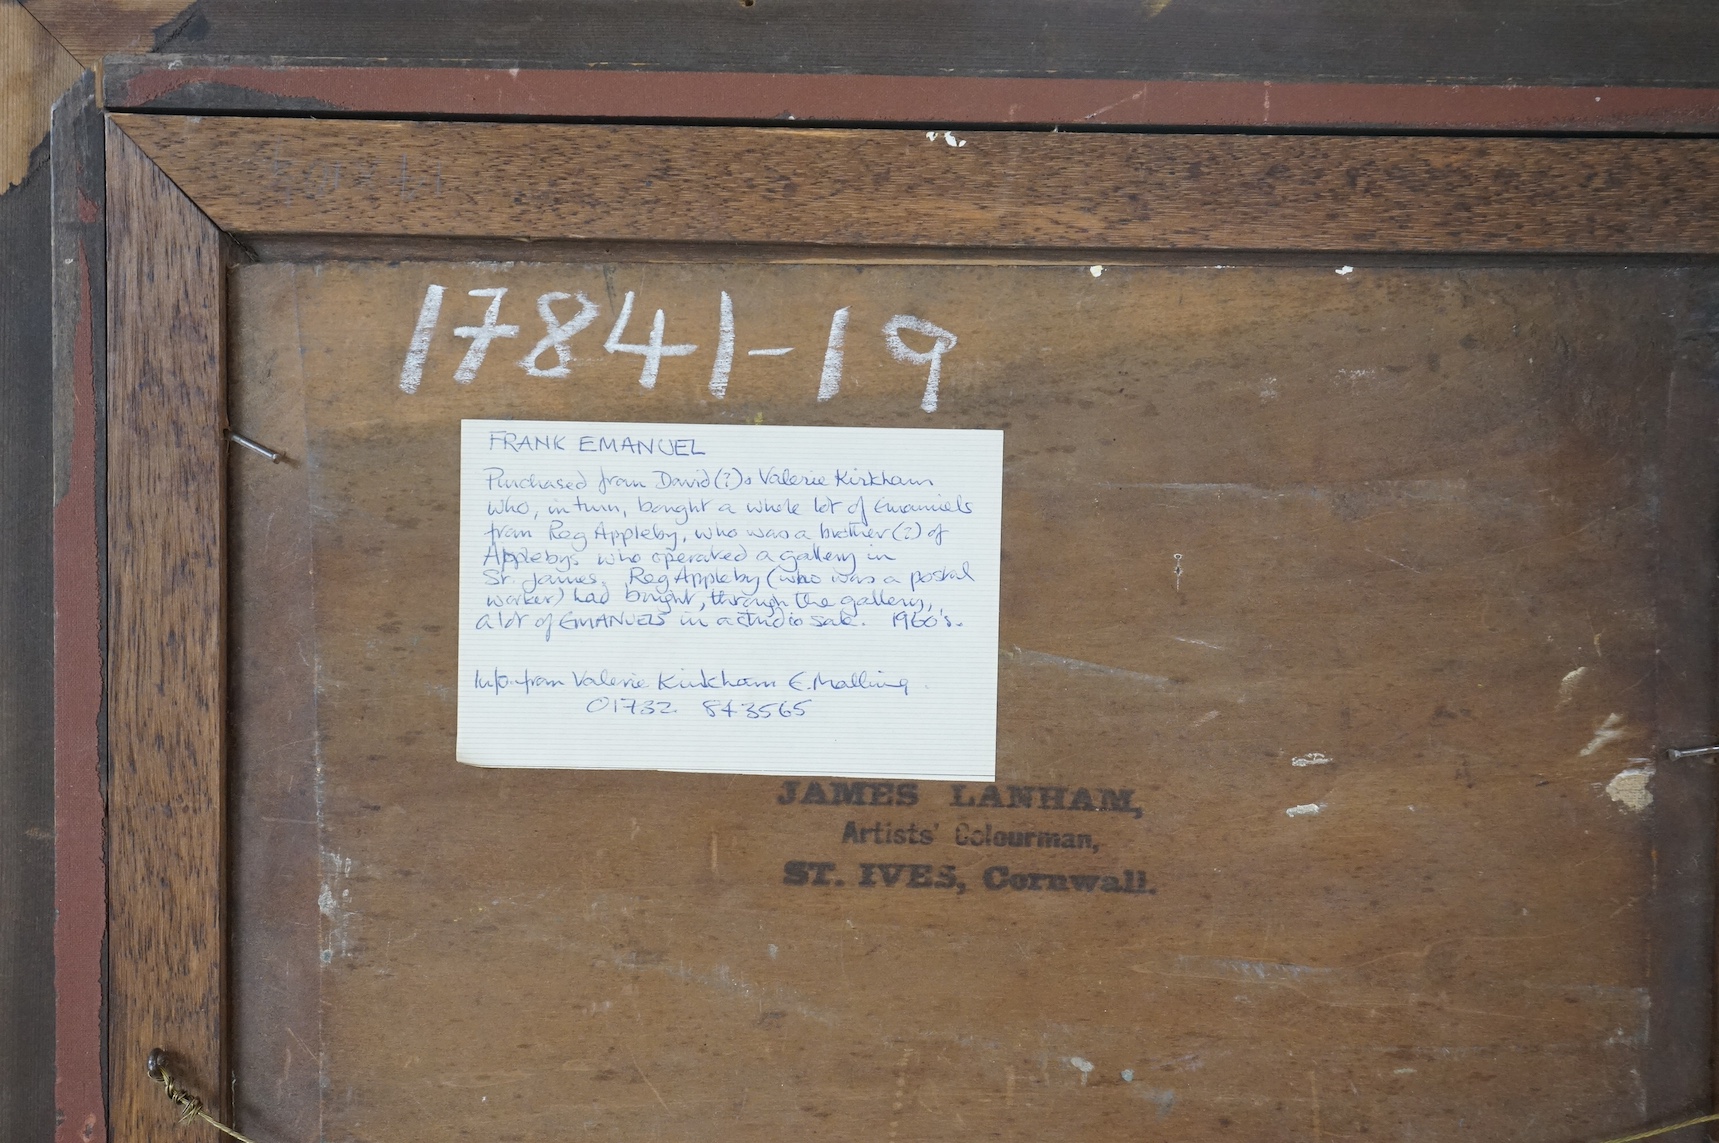 17841-19
FRANK EMANUEL
Purchased from David(?) & Valerie Kirkham
who, in turn, bought a whole lot of Emanuels
from Reg Appleby, who was a brother(?) of
Applebys who operated a gallery in
St. James, Reg Appleby (who was a postal
worker) had bought, through the gallery,
a lot of EMANUELS in a studio sale. 1960's.
Info. from Valerie Kirkham E. Malling
01732 843565
JAMES LANHAM,
Artists' Colourman,
ST. IVES, Cornwall.